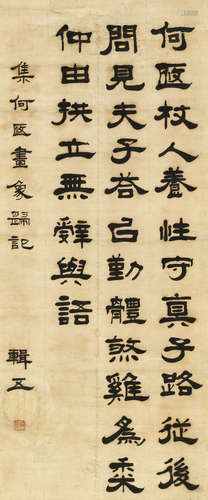 何匱杖人養性守真子路從後
問見夫子荅㠯勤體煞雞為黍
仲由拱立無辭與語
集何匱畫象歸記
輯五